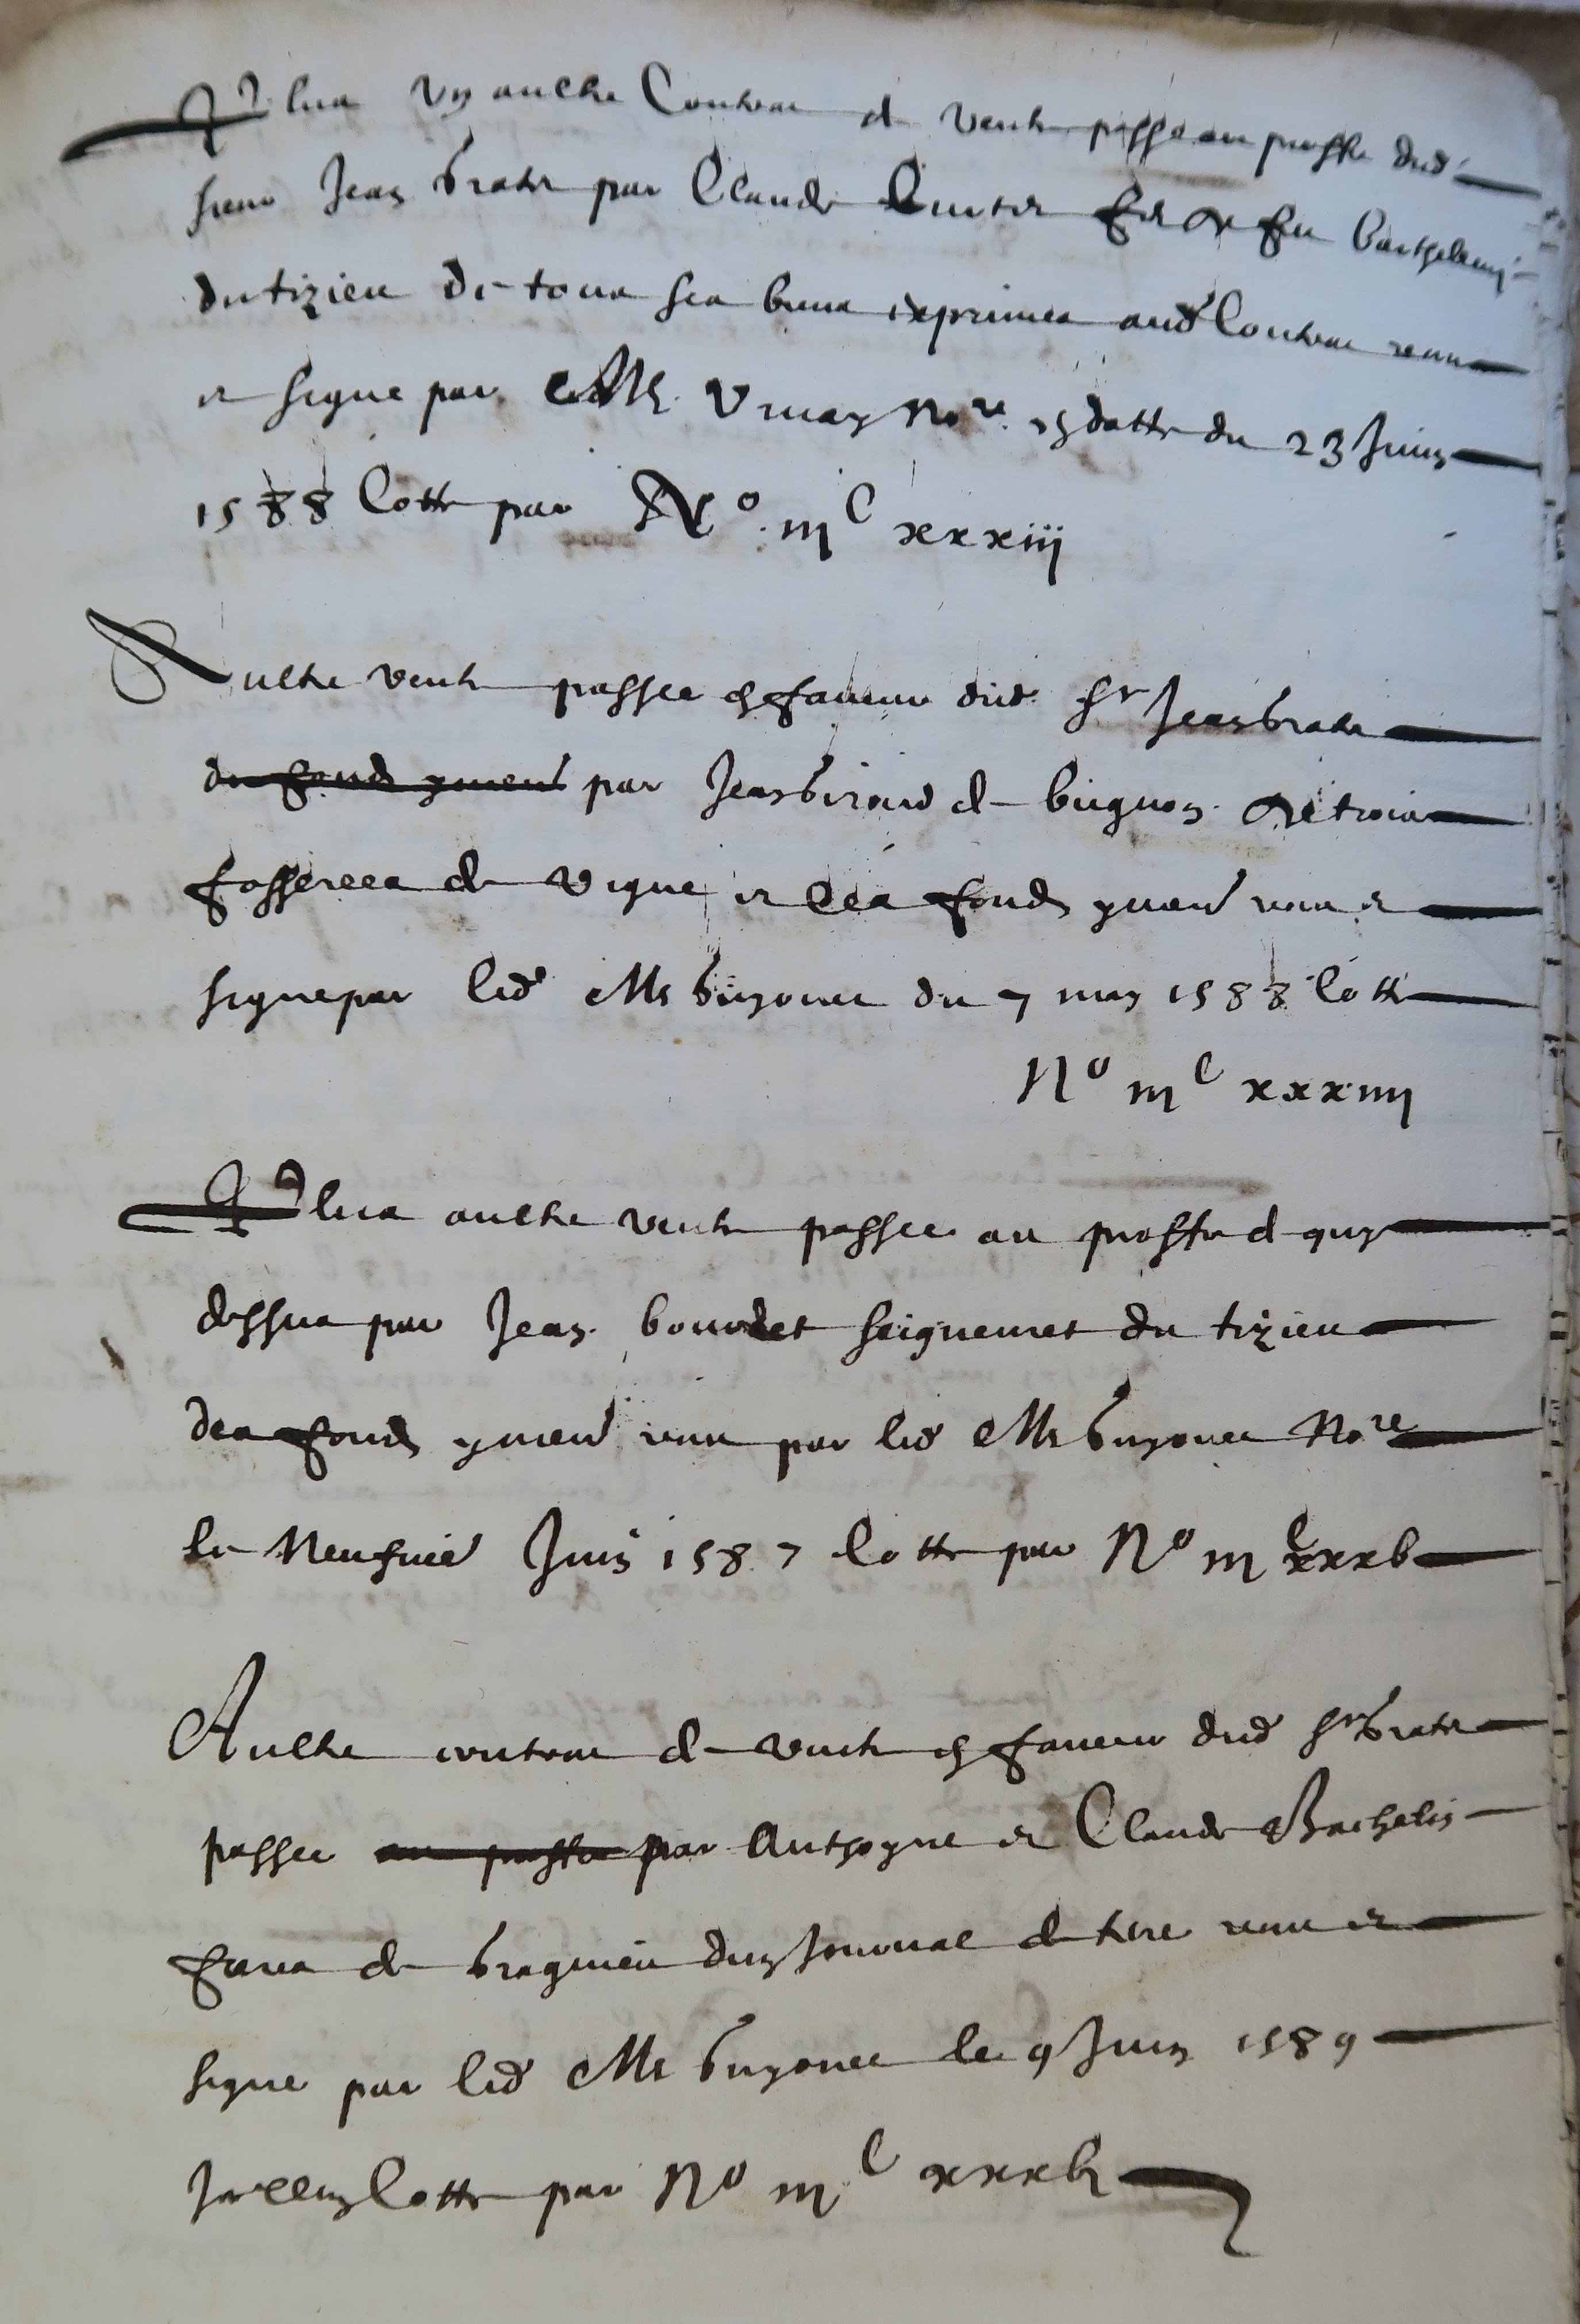 Plus un aultre Contrac de vente passe au proffit dud
sieur Jean brater par Claude filz de feu barthelemy
du tizieu de tous ses biens exprimes aud Contrac receu
et signe par Me Vrnay Nore en datte du 23 Juin
1588 Cotte par No iijC xxxiij
Aultre vente passee en faveur dud Sr Jean brater
du fondz y mene par Jean Girard de bugnon de trois
fosserees de vigne et les fondz y mene receu et
signe par led Me Guyonet du 7 may 1588 Cotte
No iijC xxxiiij
Plus aultre vente passee au proffit de quy
dessus par Jean bourdet seigneuret du tizieu
des fondz y mene receu par led Me Guyonet Nore
le Neufvie Juin 1587 Cotte par No iijC xxxv
Aultre contrac de vente en faveur dud Sr brater
passee au proffit par Anthoyne et Claude Bachelin
freres de bragnieu dun Journal de terre receu et
signe par led Me Guyonet le 9 Juin 1589
Cotte par No iijC xxxvj